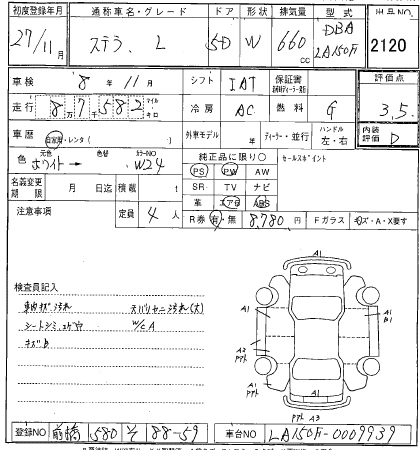 初度登録年月 通称車名・グレード ドア 形状 排気量 型式 出品NO.
27/11月 ステラ L 5D W 660cc DBA LA150F 2120
車検 8年 11月 シフト IAT 保証書 評価点
走行 8万7千582 マイル・キロ 冷房 AC 燃料 G 3.5
車歴 自家用・レンタ ( ) 外車モデル 年 ディーラー・並行 ハンドル 左・右 内装評価 D
色 元色 ホワイト → 色替 カラーNO W24 純正品に限り○ セールスポイント
PS PW AW
名義変更期限 月 日迄 積載 t SR TV ナビ
革 エアB ABS
注意事項 定員 4人 R券 有・無 8,780円 Fガラス キズ・A・X要す
検査員記入
車内キズ汚れ
シートシミ、コゲ穴 W/C A
A1
A1
A1
A2
アトA
A1
アトA
アト A3
登録NO 前橋 580 そ 88-59 車台NO LA150F-0009939